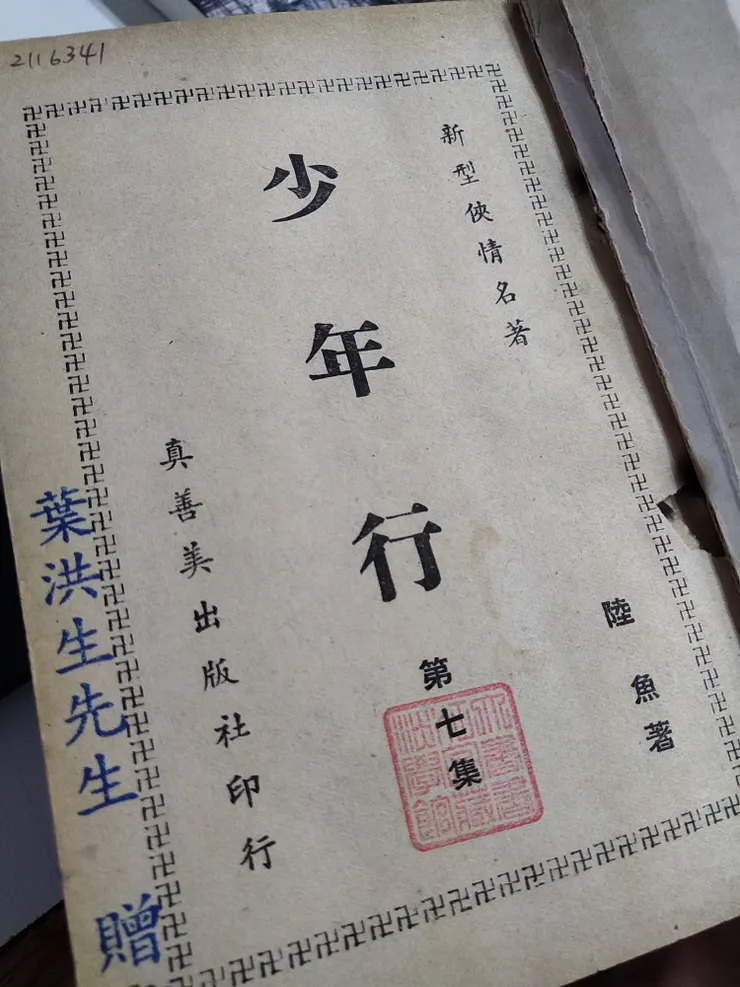 2116341
新型俠情名著
少年行
第七集
陸魚著
真善美出版社印行
葉洪生先生 贈